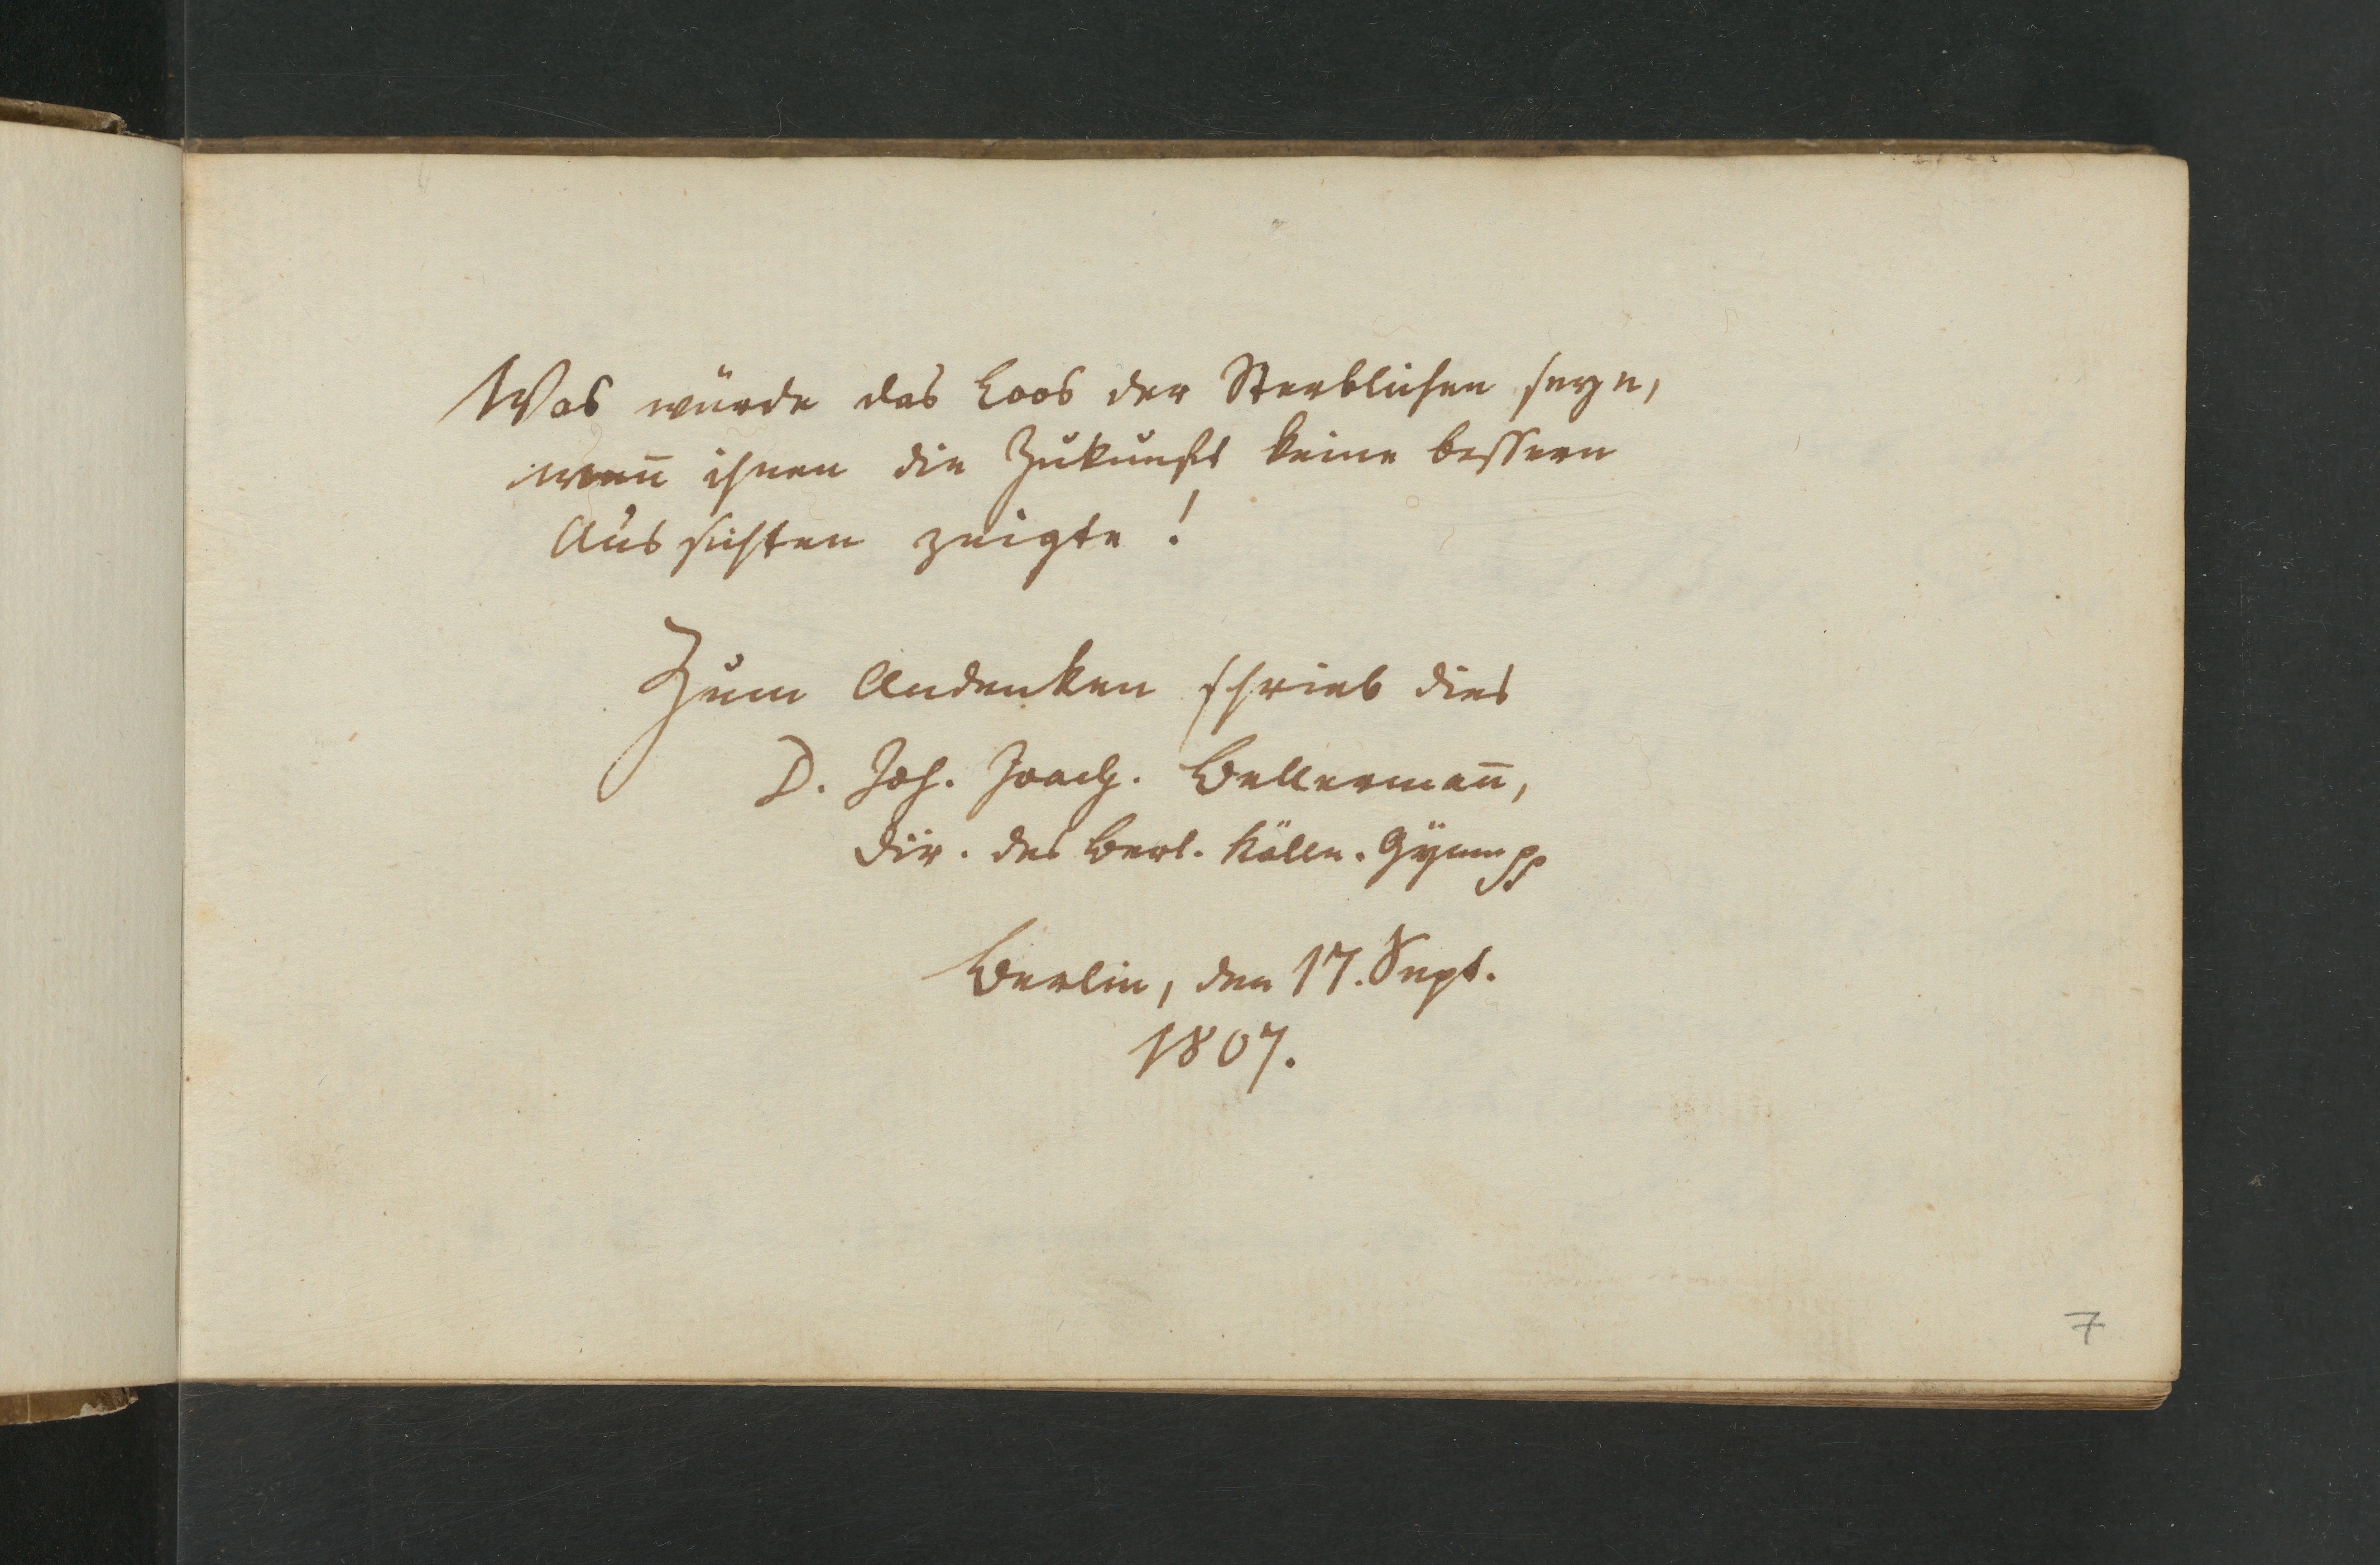 Was würde das Loos der Sterblichen seyn,
wen̄ ihnen die Zukunft keine bessern
Aussichten zeigte!
Zum Andenken schrieb dies
D. Joh. Joach. Bellerman̄,
Dir. des Berl. Kölln. Gymn pp
Berlin, den 17. Sept.
1807.
7